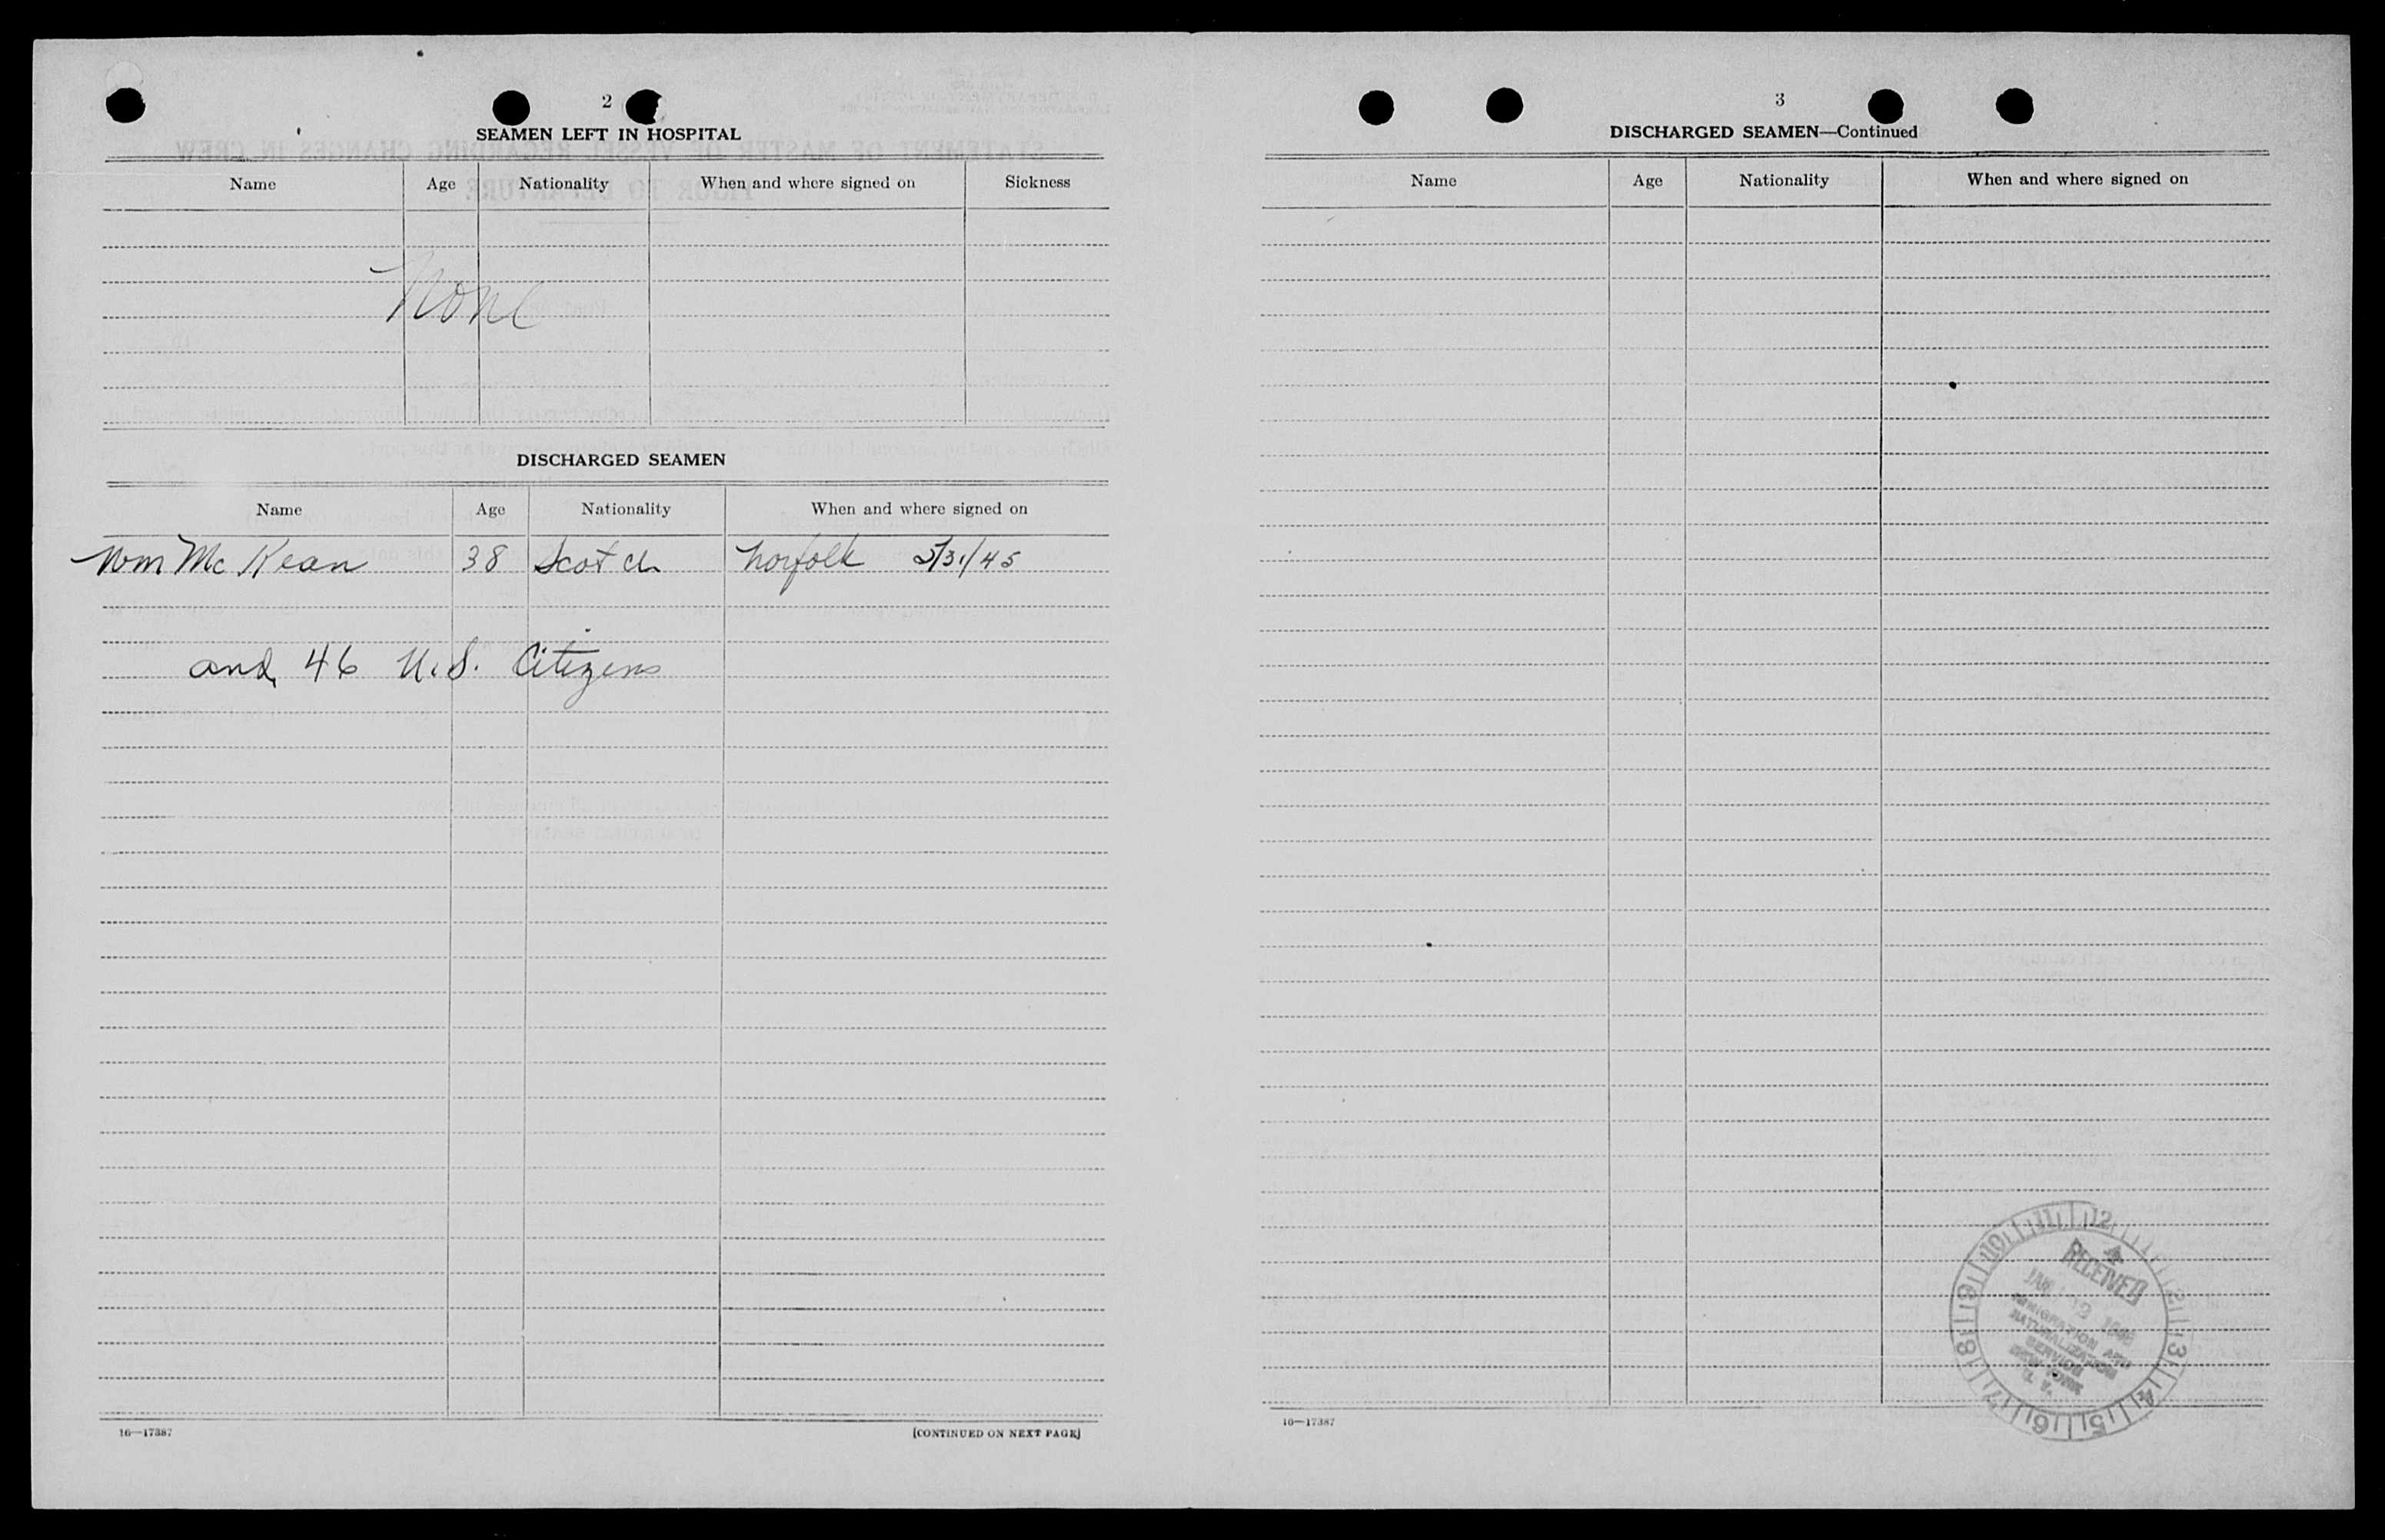 2
SEAMEN LEFT IN HOSPITAL
Name Age Nationality When and where signed on Sickness
None
DISCHARGED SEAMEN
Name Age Nationality When and where signed on
Wm Mc Kean 38 Scotch Norfolk /31/45
and 46 U.S. Citizens
16—17387 [CONTINUED ON NEXT PAGE]
3
DISCHARGED SEAMEN—Continued
Name Age Nationality When and where signed on
RECEIVED
JAN 12
IMMIGRATION AND
NATURALIZATION
SERVICE
NEW YORK
N. Y.
16—17387